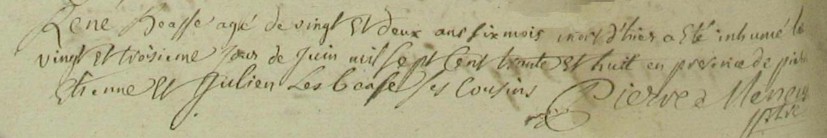 René Beasse agé de vingt et deux ans six mois mort d'hier a esté inhumé le
vingt et troisieme jour de juin mil sept cent trante et huit en presence de
Etienne et Julien Les beasse ses cousins Pierre
ptre